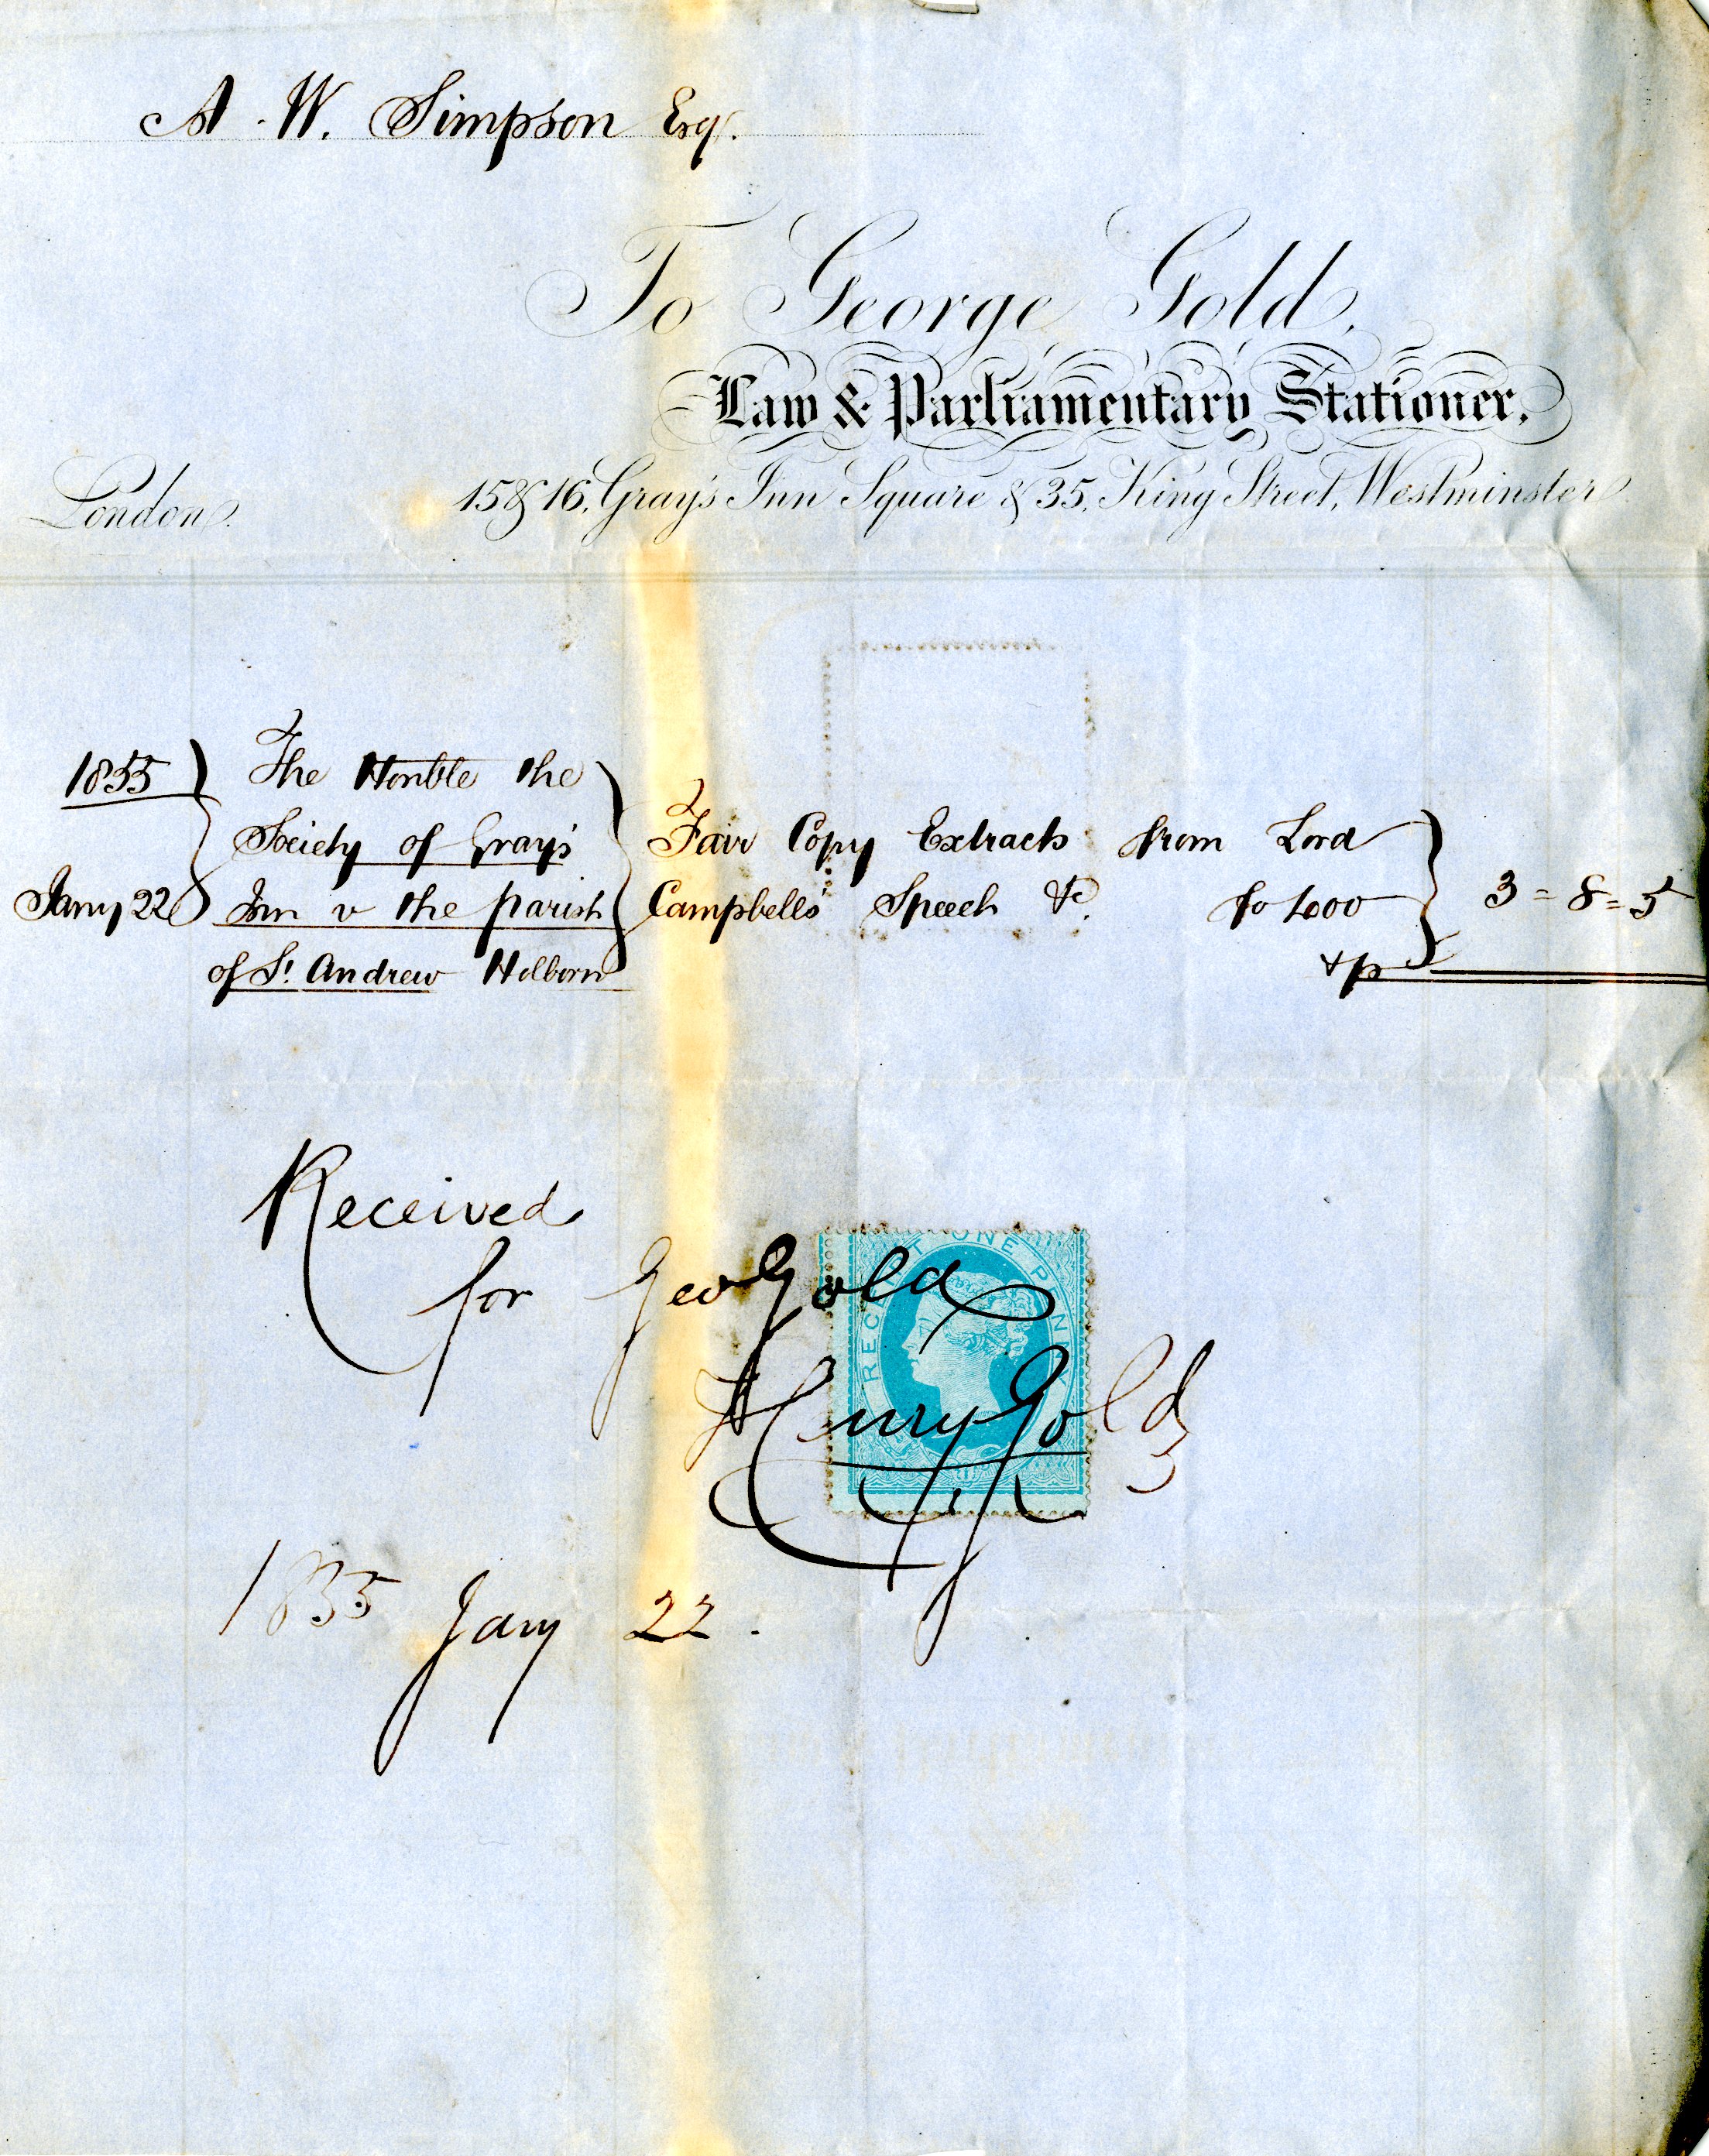 A. W. Simpson Esq.
To George Gold,
Law & Parliamentary Stationer,
London. 15 & 16, Gray's Inn Square & 35, King Street, Westminster
1855 The Honble the
Society of Gray's Fair Copy Extracts from Lord
Jany 22 Inn v the parish Campbells Speech &c. fo 1000 3 = 8 = 5
of St. Andrew Holborn
Received
for Geo Gold
RECEIPT ONE PENNY
Henry Gold
1855 Jany 22.